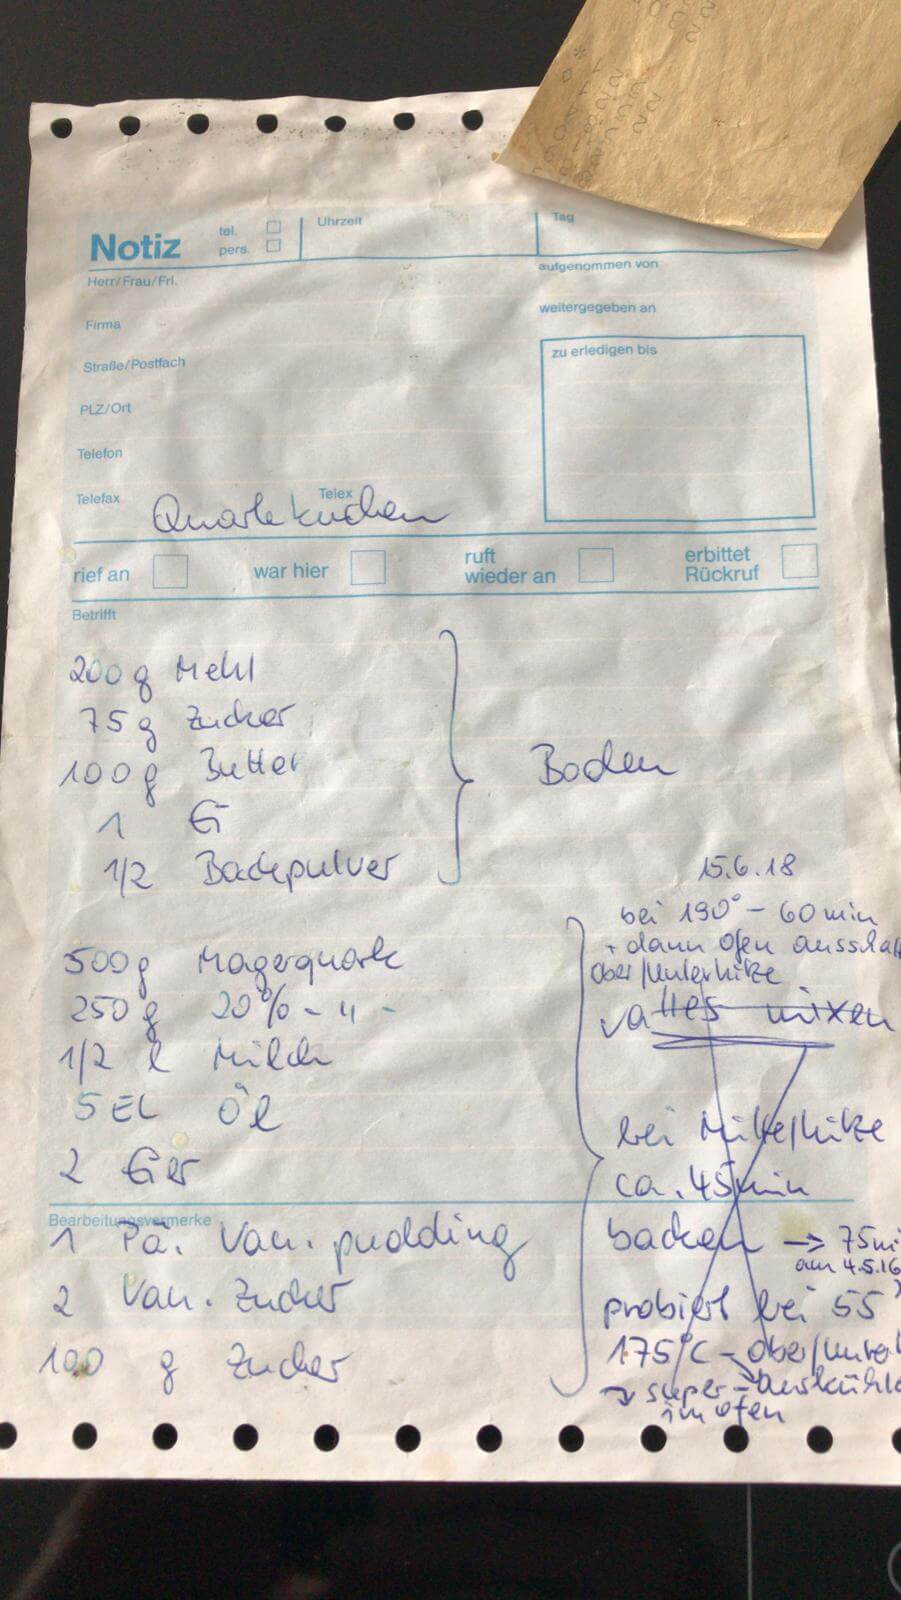 Notiz
tel.
pers.
Uhrzeit
Tag
Herr/Frau/Frl.
aufgenommen von
Firma
weitergegeben an
Straße/Postfach
zu erledigen bis
PLZ/Ort
Telefon
Telefax
Telex
Quarkkuchen
rief an
war hier
ruft
wieder an
erbittet
Rückruf
Betrifft
200 g Mehl
75 g Zucker
100 g Butter
1 Ei
1/2 Backpulver
Boden
500 g Magerquark
250 g 20% - " -
1/2 l Milch
5 EL Öl
2 Eier
Bearbeitungsvermerke
1 Pä. Van. pudding
2 Van. Zucker
100 g Zucker
15.6.18
bei 190° - 60 min
+ dann Ofen ausschalt
Ober/Unterhitze
alles mixen
bei Mittelhitze
ca. 45 min
backen → 75 mi
am 4.5.16
probiert bei 55
175°C - Ober/Unter
→ super - auskühl
im Ofen